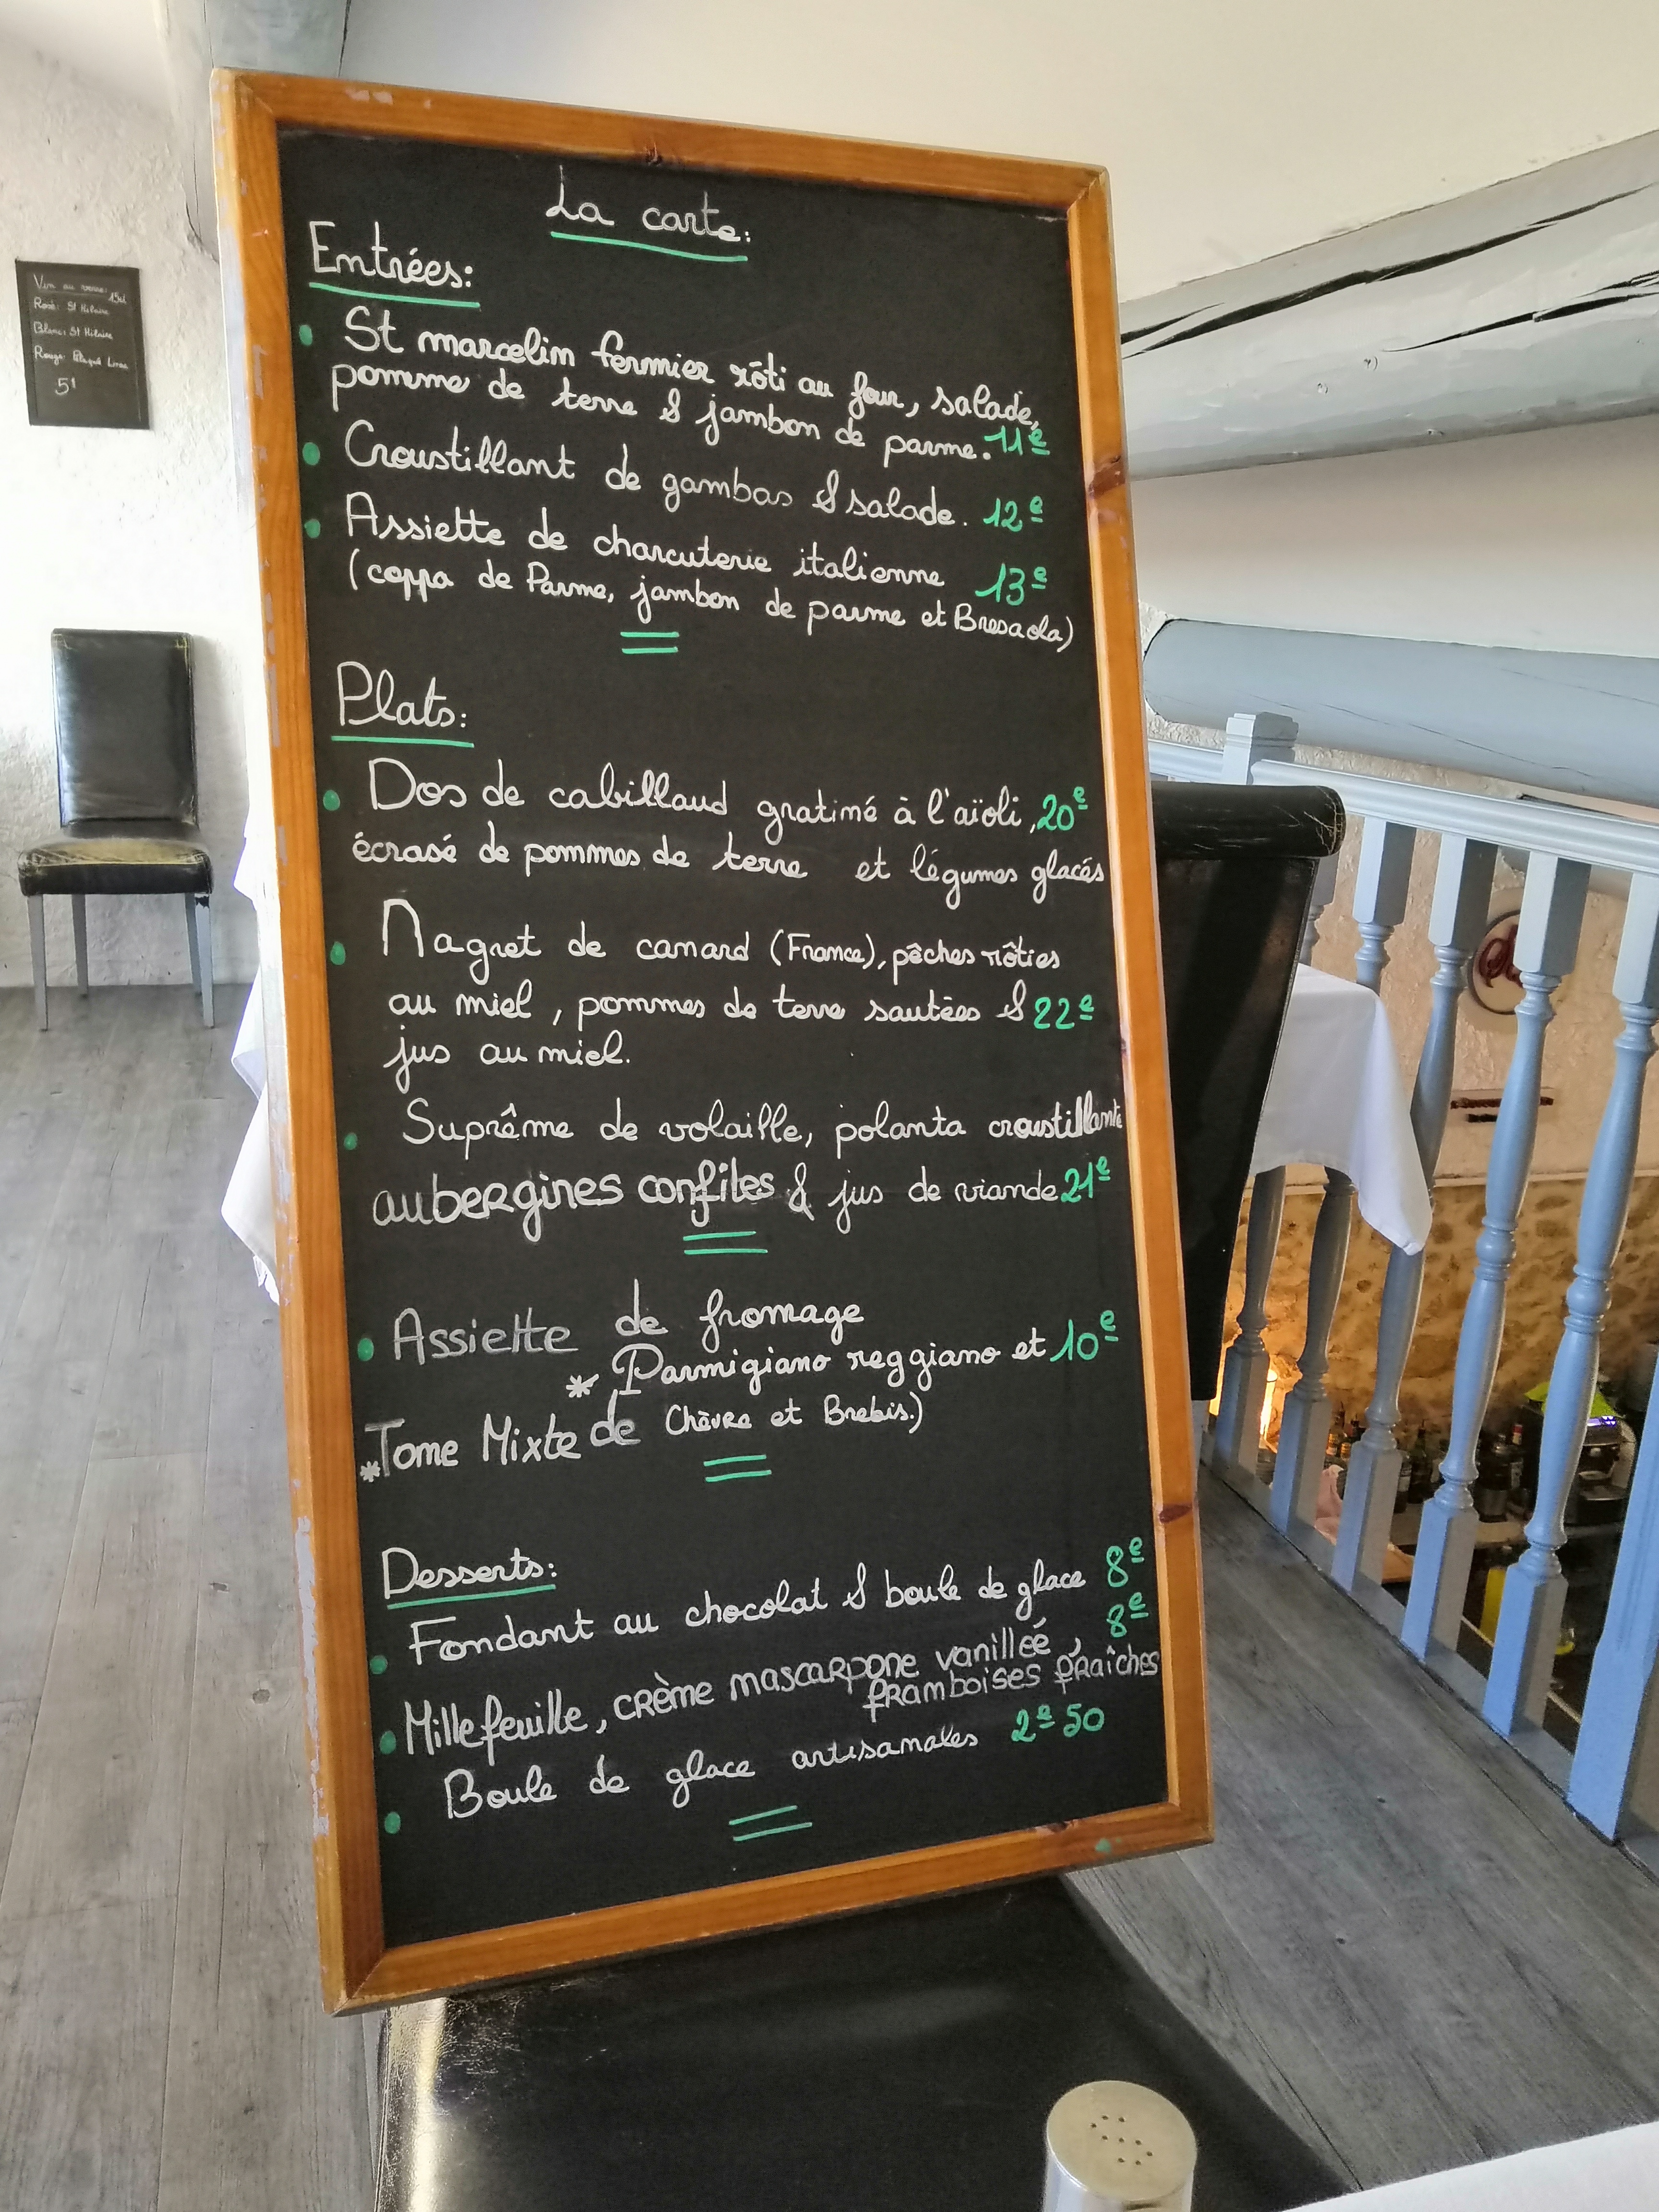 La carte:
Entrées:
• St marcelin fermier rôti au four, salade,
pomme de terre & jambon de parme. 11e
• Croustillant de gambas & salade. 12e
• Assiette de charcuterie italienne 13e
(coppa de Parme, jambon de parme et Bresaola)
Plats:
• Dos de cabillaud gratiné à l'aïoli, 20e
écrasé de pommes de terre et légumes glacés
• Magret de canard (France), pêches rôties
au miel, pommes de terre sautées & 22e
jus au miel.
• Suprême de volaille, polenta croustillante
aubergines confites & jus de viande 21e
• Assiette de fromage
* Parmigiano reggiano et 10e
*Tome Mixte de Chèvre et Brebis.)
Desserts:
• Fondant au chocolat & boule de glace 8e
• Millefeuille, crème mascarpone vanilleé, 8e
framboises fraîches
• Boule de glace artisanales 2e50
Vin au verre: 15cl
Rosé: St Hilaire
Blanc: St Hilaire
Rouge:
5